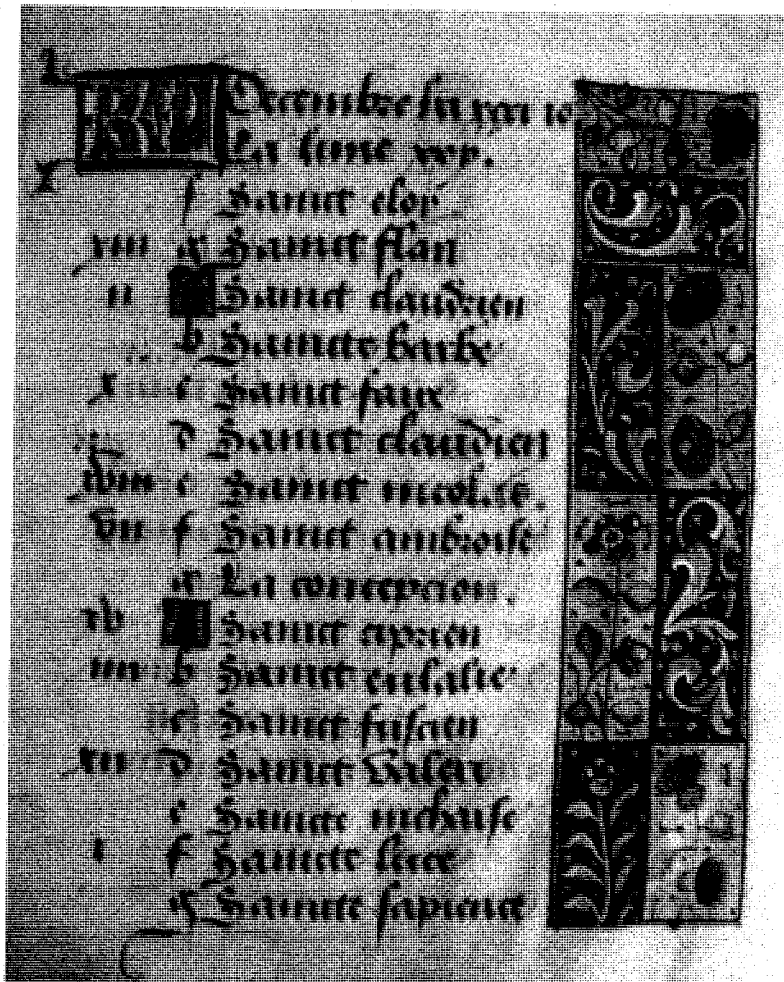 KL Decembre a xxxi io
La lune xxx.
f Sainct eloy
xiii g Sainct flan
ii A Sainct claudrien
b Saincte barbe
x c Sainct
d Sainct claudien
xviii e Sainct nicolas.
vii f Sainct ambroise
g La concepcion.
xv A Sainct ciprien
iiii b Sainct eulalie
c Sainct fuscien
xii d Sainct
e Saincte nichaise
i f Saincte luce
g Saincte sapience